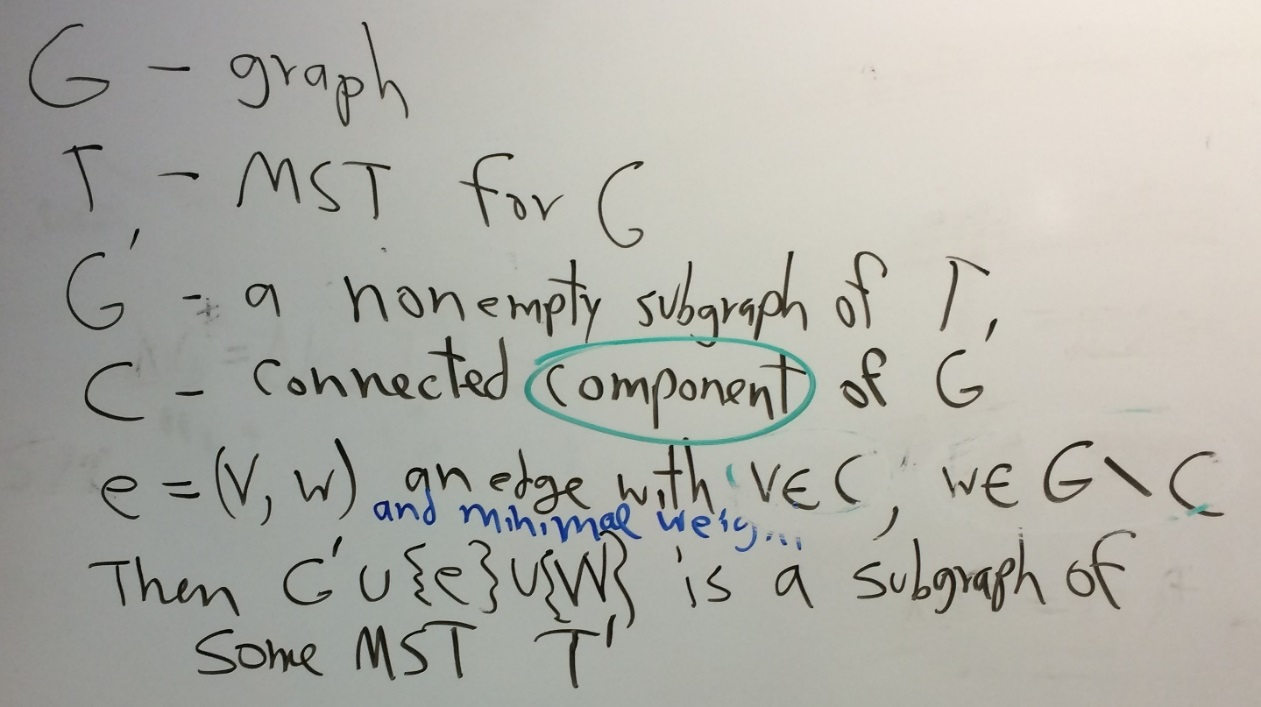 G - graph
T - MST for G
G' - a nonempty subgraph of T,
C - connected component of G'
e = (v, w) an edge with v∈C, w∈G\C
and minimal weig...
Then G'∪{e}∪{w} is a subgraph of
some MST T'